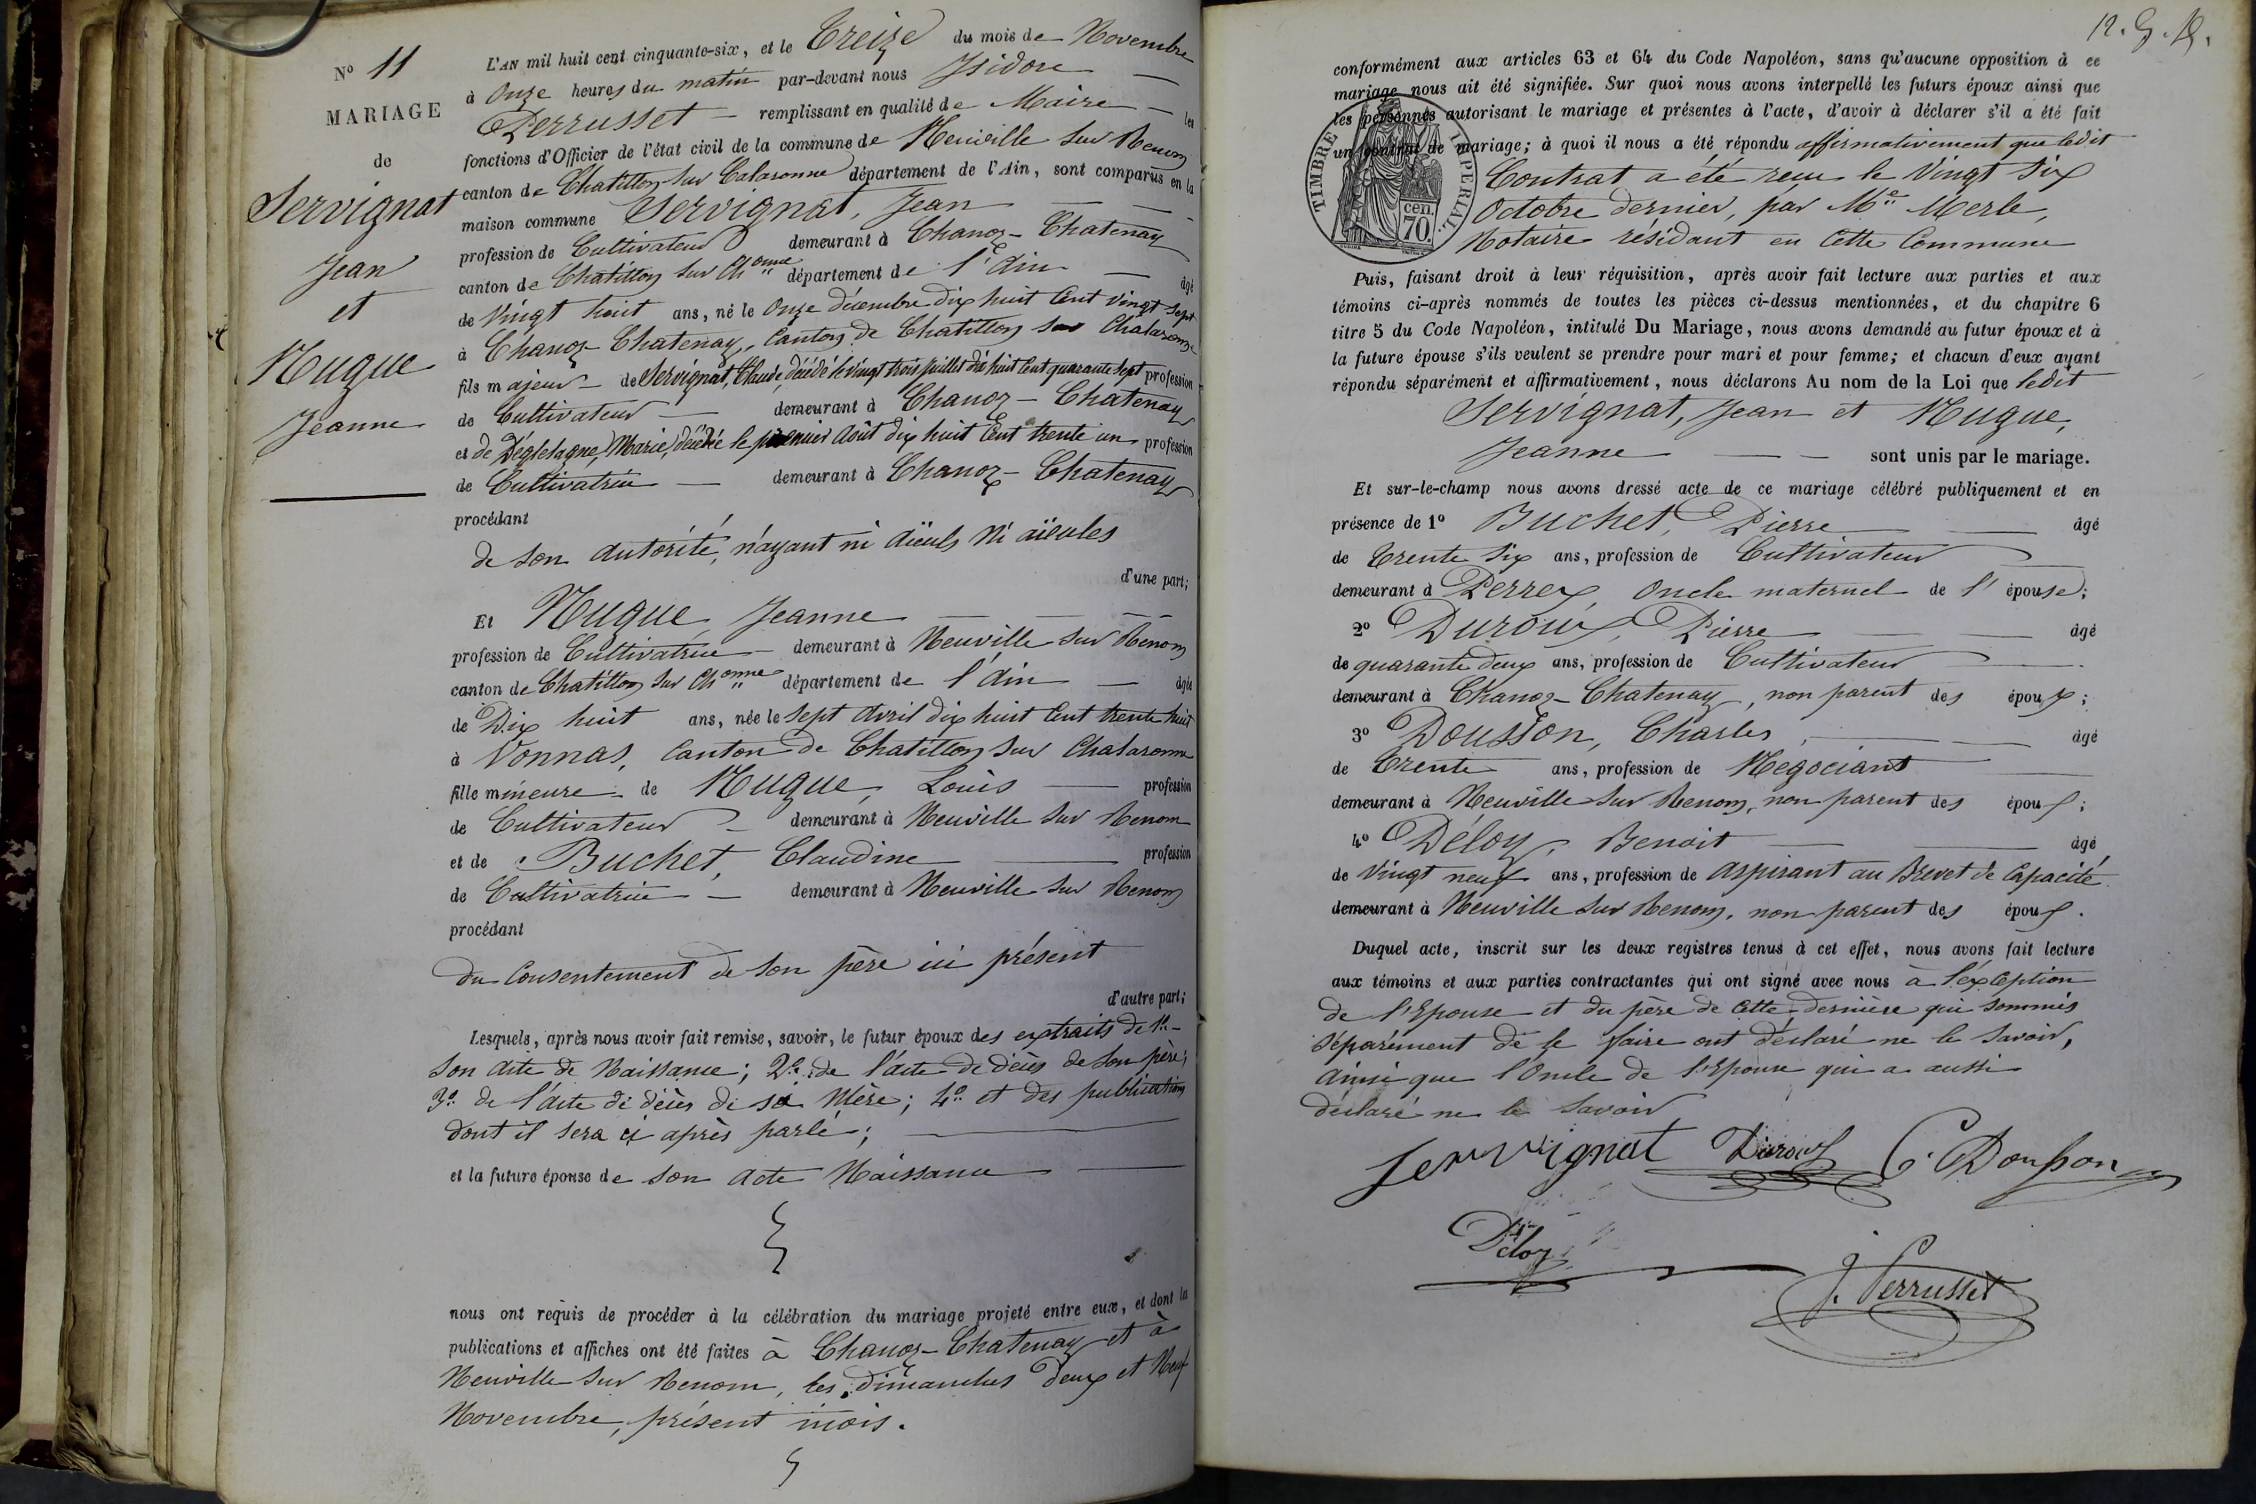 N° 11
MARIAGE
de
Servignat
Jean
et
Nugue
Jeanne
L'AN mil huit cent cinquante-six, et le Treize du mois de Novembre
à Onze heures du matin par-devant nous Isidore
Perrusset remplissant en qualité de Maire les
fonctions d'Officier de l'état civil de la commune de Neuville sur Renom
canton de Chatillon sur Calaronne département de l'Ain, sont comparus en la
maison commune Servignat, Jean
profession de Cultivateur demeurant à Chanoz-Chatenay
canton de Chatillon sur Ch onne département de l'Ain âgé
de Vingt huit ans, né le Onze décembre dix huit Cent vingt sept
à Chanoz-Chatenay, Canton de Chatillon sur Chalaronne
fils majeur de Servignat, Claude, décédé le vingt trois juillet dix huit Cent quarante sept profession
de Cultivateur demeurant à Chanoz-Chatenay
et de Déglelagne, Marie, décédée le premier Août dix huit Cent trente un profession
de Cultivatrice demeurant à Chanoz-Chatenay
procédant
de son autorité, n'ayant ni aïeuls ni aïeules
d'une part;
Et Nugue Jeanne
profession de Cultivatrice demeurant à Neuville sur Renom
canton de Chatillon sur Ch onne département de l'Ain âgée
de Dix huit ans, née le Sept Avril dix huit Cent trente huit
à Vonnas, Canton de Chatillon sur Chalaronne
fille mineure de Nugue, Louis profession
de Cultivateur demeurant à Neuville sur Renom
et de Buchet, Claudine profession
de Cultivatrice demeurant à Neuville sur Renom
procédant
du Consentement de son père ici présent
d'autre part;
Lesquels, après nous avoir fait remise, savoir, le futur époux des extraits de 1°
son acte de Naissance; 2° de l'acte de décès de son père;
3° de l'acte de décès de sa Mère; 4° et des publications
dont il sera ci après parlé;
et la future épouse de son acte Naissance
nous ont requis de procéder à la célébration du mariage projeté entre eux, et dont la
publications et affiches ont été faites à Chanoz-Chatenay et à
Neuville sur Renom, les dimanches deux et Neuf
Novembre, présent mois.
conformément aux articles 63 et 64 du Code Napoléon, sans qu'aucune opposition à ce
mariage nous ait été signifiée. Sur quoi nous avons interpellé les futurs époux ainsi que
les personnes autorisant le mariage et présentes à l'acte, d'avoir à déclarer s'il a été fait
un contrat de mariage; à quoi il nous a été répondu affirmativement que ledit
Contrat a été reçu le Vingt six
Octobre dernier, par Me Merle,
Notaire résidant en Cette Commune
TIMBRE IMPERIAL
cen. 70.
Puis, faisant droit à leur réquisition, après avoir fait lecture aux parties et aux
témoins ci-après nommés de toutes les pièces ci-dessus mentionnées, et du chapitre 6
titre 5 du Code Napoléon, intitulé Du Mariage, nous avons demandé au futur époux et à
la future épouse s'ils veulent se prendre pour mari et pour femme; et chacun d'eux ayant
répondu séparément et affirmativement, nous déclarons Au nom de la Loi que ledit
Servignat, Jean et Nugue,
Jeanne sont unis par le mariage.
Et sur-le-champ nous avons dressé acte de ce mariage célébré publiquement et en
présence de 1° Buchet, Pierre âgé
de Trente six ans, profession de Cultivateur
demeurant à Perrex, Oncle maternel de l'épouse;
2° Duroux, Pierre âgé
de quarante deux ans, profession de Cultivateur
demeurant à Chanoz-Chatenay, non parent des époux;
3° Dousson, Charles, âgé
de Trente ans, profession de Négociant
demeurant à Neuville sur Renom, non parent des époux;
4° Déloy, Benoit âgé
de Vingt neuf ans, profession de Aspirant au Brevet de Capacité
demeurant à Neuville sur Renom, non parent des époux.
Duquel acte, inscrit sur les deux registres tenus à cet effet, nous avons fait lecture
aux témoins et aux parties contractantes qui ont signé avec nous à l'exception
de l'Epouse et du père de Cette dernière qui sommés
séparément de le faire ont déclaré ne le savoir,
Ainsi que l'Oncle de l'Epouse qui a aussi
déclaré ne le savoir
Servignat Duroux C. Dousson
Déloy
J. Perrusset